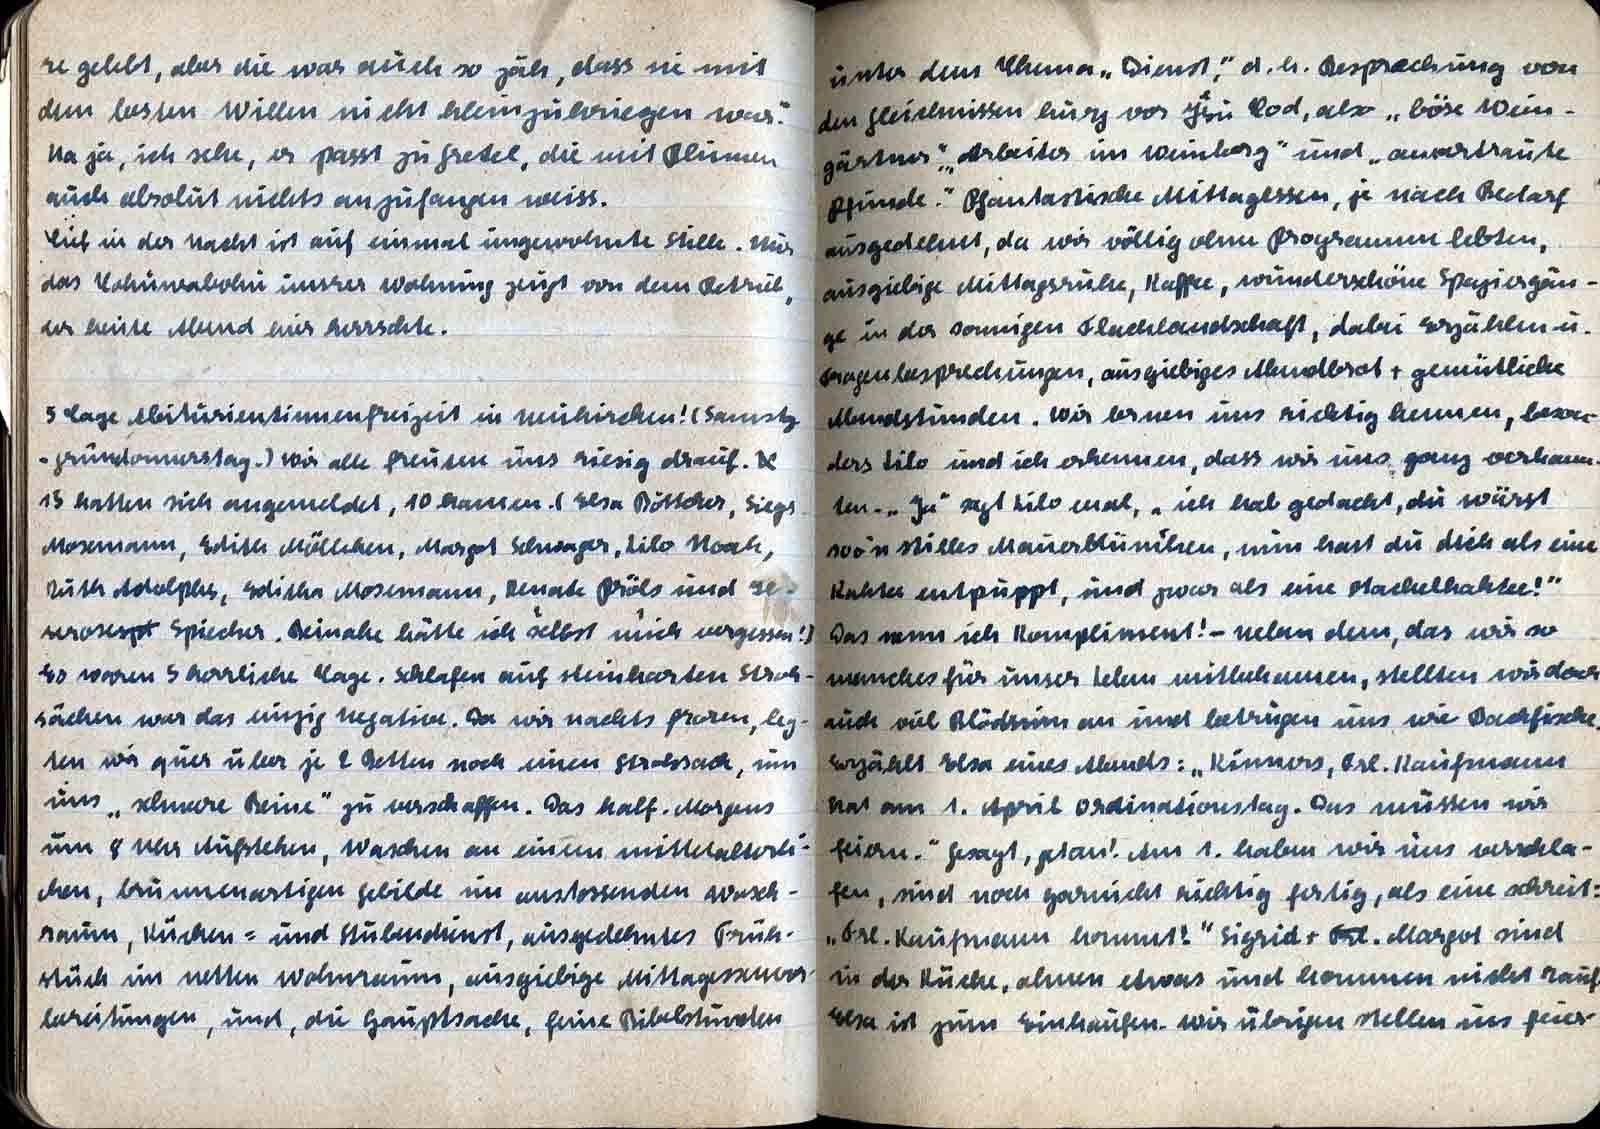 re gelebt, aber die war auch so zäh, dass sie mit
dem besten Willen nicht kleinzukriegen war."
Na ja, ich sehe, er passt zu Gretel, die mit Blumen
auch absolut nichts anzufangen weiss.
in der Nacht ist auf einmal ungewohnte Stille. Nur
das Tohuwabohu unsrer Wohnung zeugt von dem Betrieb,
der heute Abend hier herrschte.
5 Tage Abiturientinnenfreizeit in Neukirchen! (Samstg
- Gründonnerstag.) Wir alle freuten uns riesig drauf.
15 hatten sich angemeldet, 10 kamen. (Elsa Böttcher, Siegr.
Mosemann, Edith Möllchen, Margot Schwager, Lilo Noah,
Ruth Adolphs, Editha Mosemann, Renate Pröls und
Spiecher. Beinahe hätte ich selbst mich vergessen!)
Es waren 5 herrliche Tage. Schlafen auf steinharten Stroh-
säcken war das einzig Negative. Da wir nachts froren, leg-
ten wir quer über je 2 Betten noch einen Strohsack, um
uns „schwere Beine" zu verschaffen. Das half. Morgens
um 8 Uhr Aufstehen, Waschen an einem mittelalterli-
chen, brunnenartigen Gebilde im anstossenden Wasch-
raum, Küchen= und Stubendienst, ausgedehntes Früh-
stück im netten Wohnraum, ausgiebige Mittagessenvor-
bereitungen, und, die Hauptsache, feine Bibelstunden
unter dem Thema „Dienst", d.h. Besprechung von
den Gleichnissen kurz vor Jesu Tod, also „böse Wein-
gärtner", „Arbeiter im Weinberg" und „anvertraute
Pfunde." Phantastische Mittagessen, je nach Bedarf
ausgedehnt, da wir völlig ohne Programm lebten,
ausgiebige Mittagsruhe, Kaffee, wunderschöne Spaziergän-
ge in der sonnigen Flachlandschaft, dabei Erzählen u.
Fragenbesprechungen, ausgiebiges Abendbrot + gemütliche
Abendstunden. Wir lernen uns richtig kennen, beson-
ders Lilo und ich erkennen, dass wir uns ganz verkann-
ten. „Ja" sagt Lilo mal, „ich hab gedacht, du wärst
so'n stilles Mauerblümchen, nun hast du dich als eine
Kaktee entpuppt, und zwar als eine Stachelkaktee!"
Das nenn ich Kompliment! - Neben dem, das wir so
manches für unser Leben mitbekamen, stellten wir aber
auch viel Blödsinn an und betrugen uns wie Backfische.
Erzählt Elsa eines Abends: „Kinners, Frl. Kaufmann
hat am 1. April Ordinationstag. Das müssen wir
feiern." Gesagt, getan! Am 1. haben wir uns verschla-
fen, sind noch garnicht richtig fertig, als eine schreit:
„Frl. Kaufmann kommt!" Sigrid + Margot sind
in der Küche, ahnen etwas und kommen nicht rauf
Elsa ist zum Einkaufen. Wir übrigen stellen uns feier-